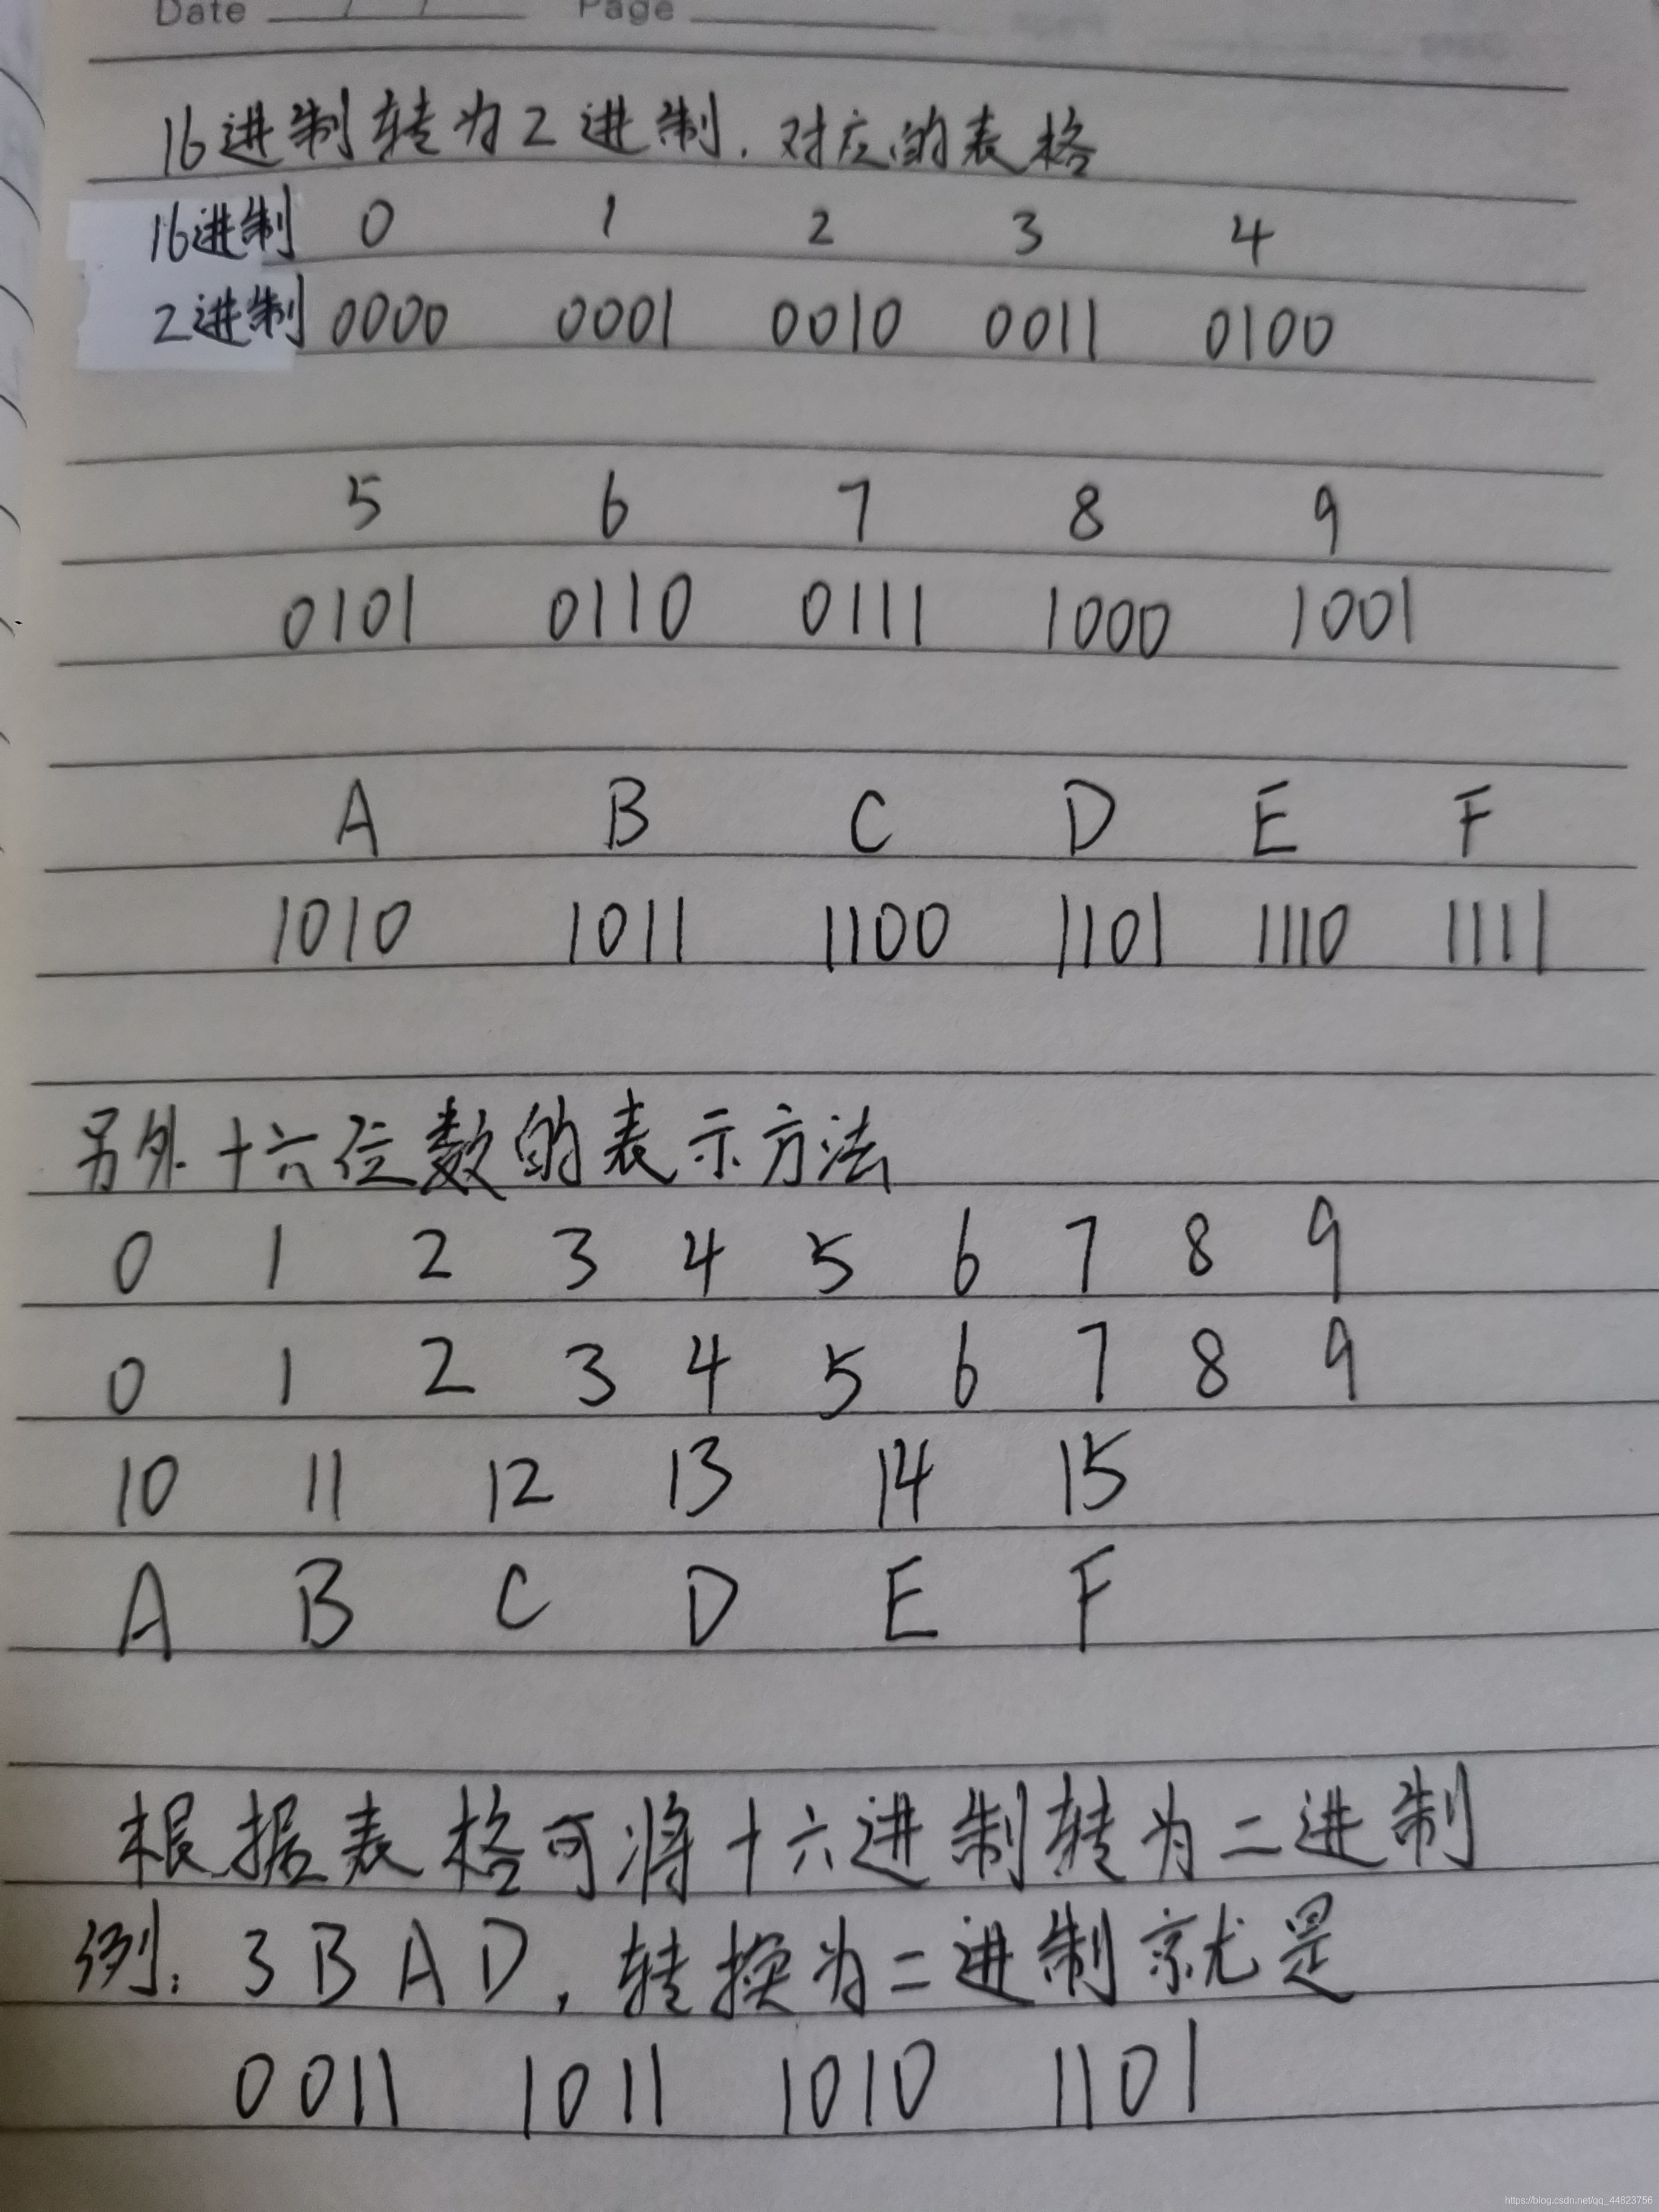 Date / / Page
16进制转为2进制.对应的表格
16进制 0 1 2 3 4
2进制 0000 0001 0010 0011 0100
5 6 7 8 9
0101 0110 0111 1000 1001
A B C D E F
1010 1011 1100 1101 1110 1111
另外十六位数的表示方法
0 1 2 3 4 5 6 7 8 9
0 1 2 3 4 5 6 7 8 9
10 11 12 13 14 15
A B C D E F
根据表格可将十六进制转为二进制
例: 3BAD,转换为二进制就是
0011 1011 1010 1101
https://blog.csdn.net/qq_44823756